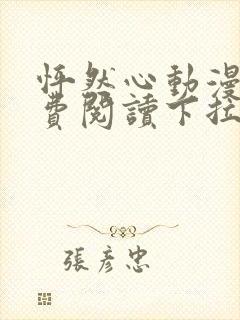 怦然心動漫
費閱讀下拉
張彥忠